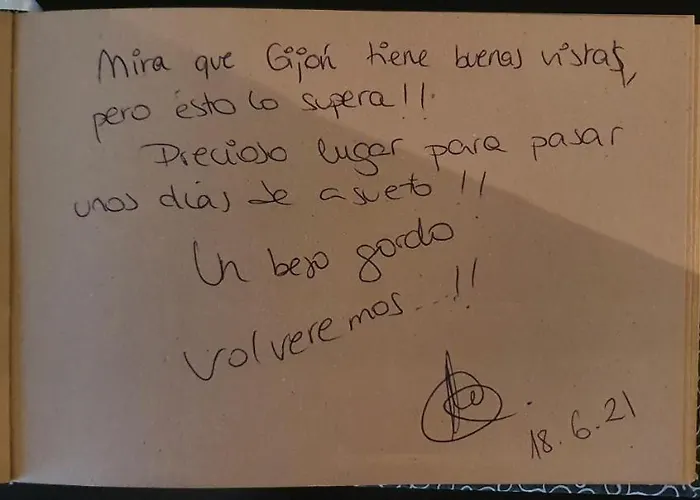 Mira que Gijón tiene buenas vistas,
pero ésto lo supera!!
Precioso lugar para pasar
unos días de asueto!!
Un beso gordo
volveremos...!!
18.6.21